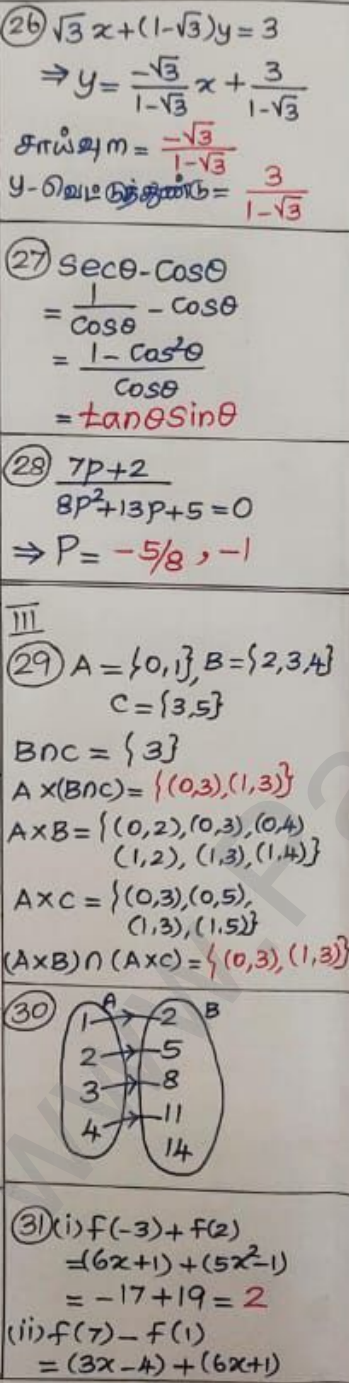 26 √3 x+(1-√3)y = 3
⇒ y = -√3/1-√3 x + 3/1-√3
சாய்வு m = -√3/1-√3
y-வெட்டுத்துண்டு = 3/1-√3
27 Secθ-Cosθ
= 1/Cosθ - Cosθ
= 1-Cos²θ/Cosθ
= tanθsinθ
28 7P+2/8P²+13P+5=0
⇒ P = -5/8 , -1
III
29 A = {0,1}, B={2,3,4}
C = {3,5}
B∩C = {3}
A×(B∩C)= {(0,3),(1,3)}
A×B = {(0,2),(0,3),(0,4)
(1,2), (1,3),(1,4)}
A×C = {(0,3),(0,5),
(1,3),(1,5)}
(A×B)∩(A×C)={(0,3),(1,3)}
30 A B
1 2
2 5
3 8
4 11
14
31 (i) f(-3)+f(2)
=(6x+1)+(5x²-1)
= -17+19 = 2
(ii) f(7)-f(1)
= (3x-4)+(6x+1)